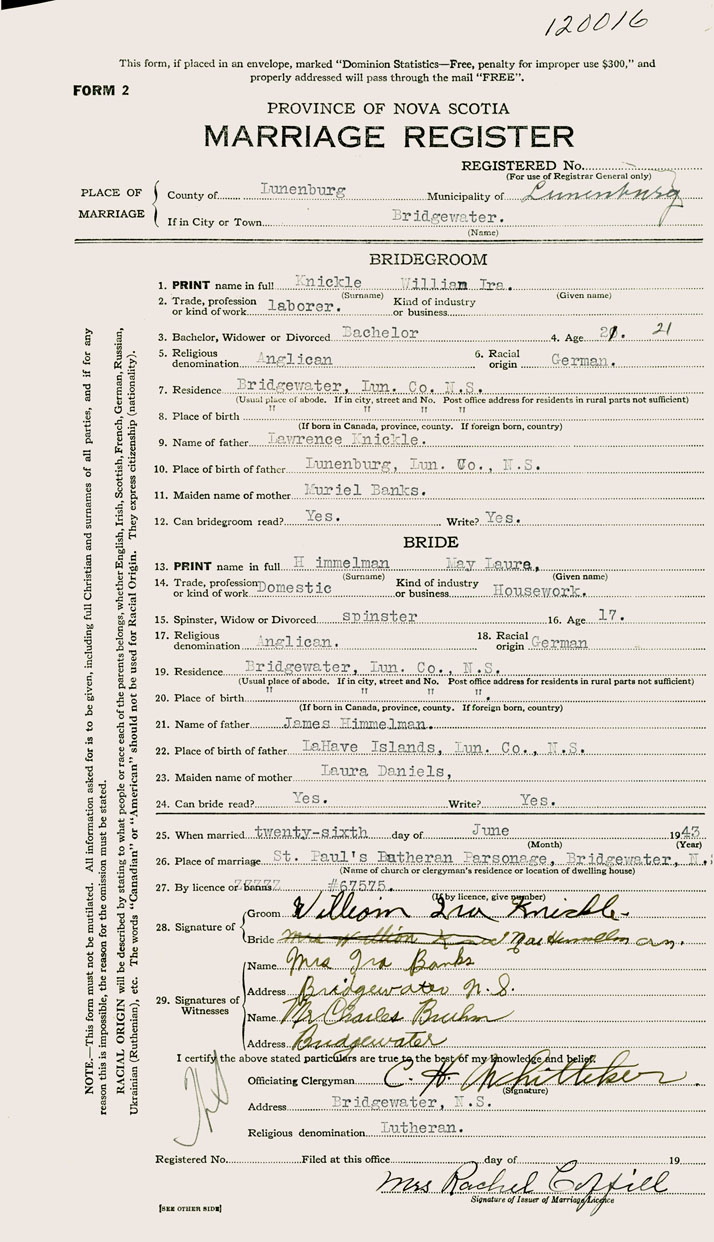 120016
This form, if placed in an envelope, marked "Dominion Statistics—Free, penalty for improper use $300," and
properly addressed will pass through the mail "FREE".
FORM 2
PROVINCE OF NOVA SCOTIA
MARRIAGE REGISTER
REGISTERED No.
(For use of Registrar General only)
PLACE OF MARRIAGE
County of Lunenburg Municipality of Lunenburg
If in City or Town Bridgewater.
(Name)
BRIDEGROOM
1. PRINT name in full Knickle William Ira.
(Surname) (Given name)
2. Trade, profession or kind of work laborer. Kind of industry or business
3. Bachelor, Widower or Divorced Bachelor 4. Age 21. 21
5. Religious denomination Anglican 6. Racial origin German.
7. Residence Bridgewater, Lun. Co. N.S.
(Usual place of abode. If in city, street and No. Post office address for residents in rural parts not sufficient)
8. Place of birth " " " "
(If born in Canada, province, county. If foreign born, country)
9. Name of father Lawrence Knickle.
10. Place of birth of father Lunenburg, Lun. Co., N.S.
11. Maiden name of mother Muriel Banks.
12. Can bridegroom read? Yes. Write? Yes.
BRIDE
13. PRINT name in full H immelman May Laura,
(Surname) (Given name)
14. Trade, profession or kind of work Domestic Kind of industry or business Housework.
15. Spinster, Widow or Divorced spinster 16. Age 17.
17. Religious denomination Anglican. 18. Racial origin German
19. Residence Bridgewater, Lun. Co., N.S.
(Usual place of abode. If in city, street and No. Post office address for residents in rural parts not sufficient)
20. Place of birth " " " ".
(If born in Canada, province, county. If foreign born, country)
21. Name of father James Himmelman.
22. Place of birth of father LaHave Islands, Lun. Co., N.S.
23. Maiden name of mother Laura Daniels,
24. Can bride read? Yes. Write? Yes.
25. When married twenty-sixth day of June 1943
(Month) (Year)
26. Place of marriage St. Paul's Lutheran Parsonage, Bridgewater, N.S
(Name of church or clergyman's residence or location of dwelling house)
27. By licence or banns #67575.
(If by licence, give number)
28. Signature of
Groom William Ira Knickle
Bride Mrs William
29. Signatures of Witnesses
Name Mrs Ira Banks
Address Bridgewater N.S.
Name Mr Charles Bruhm
Address Bridgewater
I certify the above stated particulars are true to the best of my knowledge and belief.
Officiating Clergyman C. H. Whitteker
(Signature)
Address Bridgewater, N.S.
Religious denomination Lutheran.
Registered No. Filed at this office day of 19
Mrs Rachel Coffill
Signature of Issuer of Marriage Licence
[SEE OTHER SIDE]
NOTE.—This form must not be mutilated. All information asked for is to be given, including full Christian and surnames of all parties, and if for any
reason this is impossible, the reason for the omission must be stated.
RACIAL ORIGIN will be described by stating to what people or race each of the parents belongs, whether English, Irish, Scottish, French, German, Russian,
Ukrainian (Ruthenian), etc. The words "Canadian" or "American" should not be used for Racial Origin. They express citizenship (nationality).